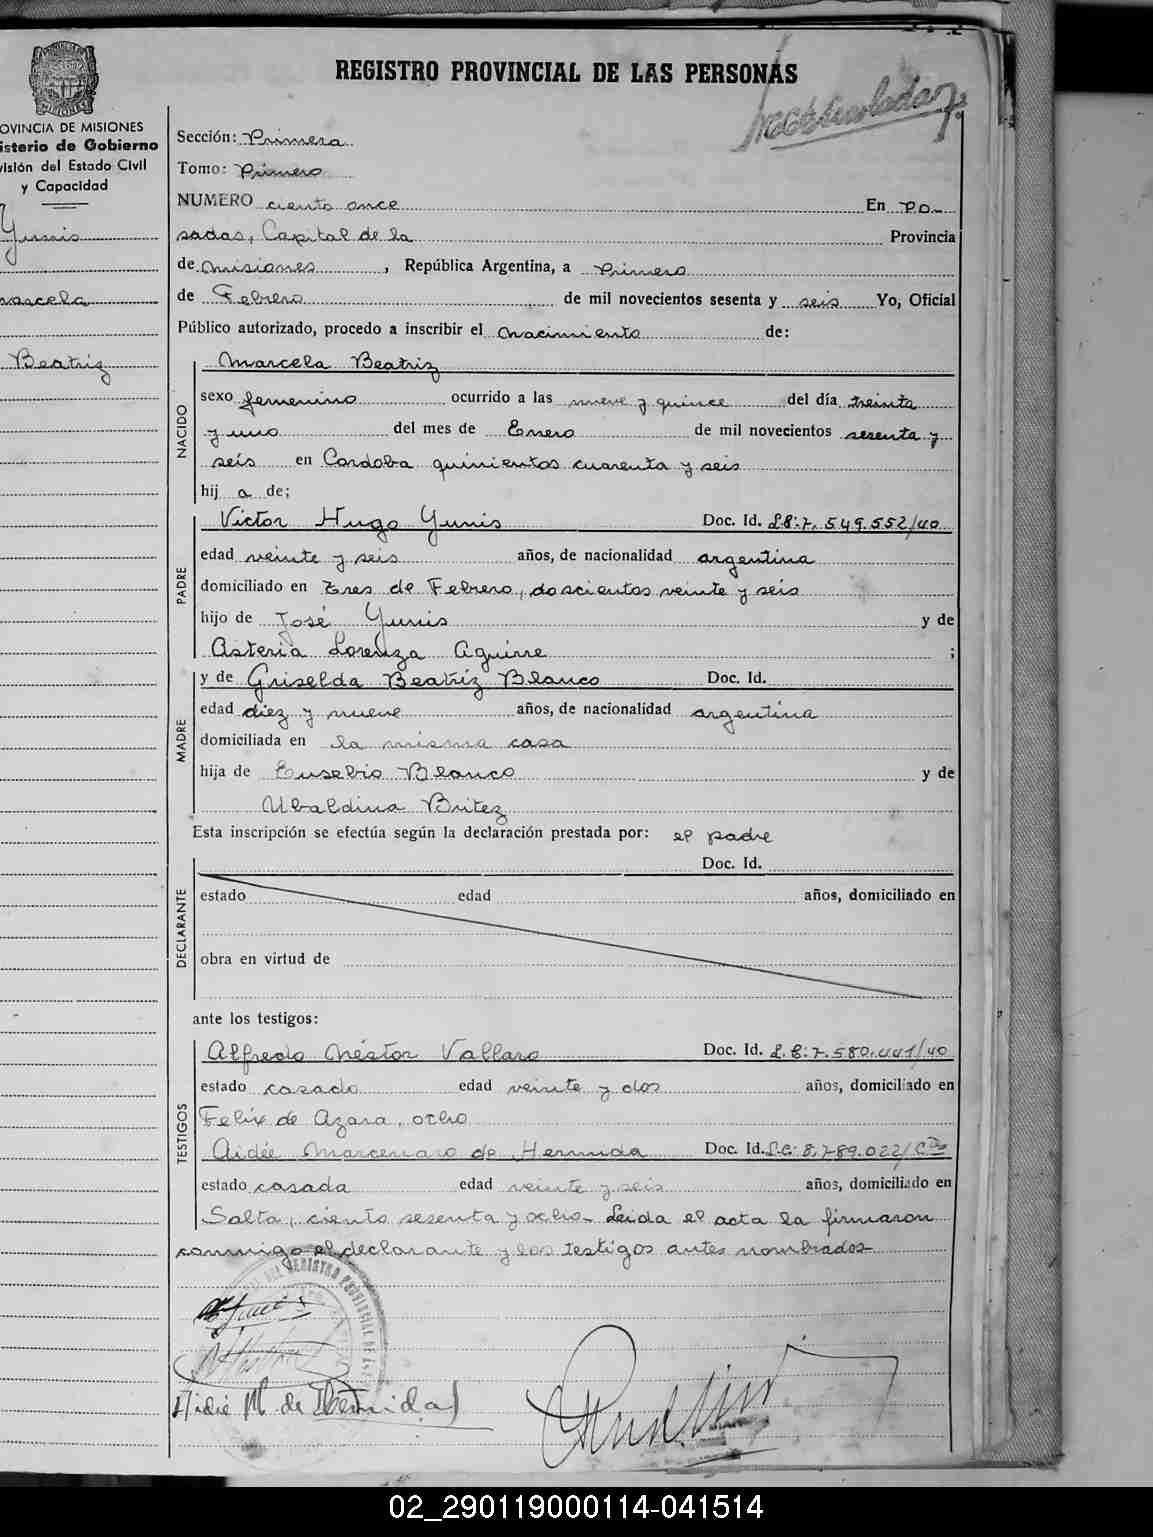 REGISTRO PROVINCIAL DE LAS PERSONAS
OVINCIA DE MISIONES
isterio de Gobierno
visión del Estado Civil
y Capacidad
Yunis
marcela
Beatriz
Sección: Primera
Tomo: Primero
NUMERO ciento once En Po-
sadas, Capital de la Provincia
de Misiones, República Argentina, a Primero
de Febrero de mil novecientos sesenta y seis Yo, Oficial
Público autorizado, procedo a inscribir el nacimiento de:
NACIDO
Marcela Beatriz
sexo femenino ocurrido a las nueve y quince del día treinta
y uno del mes de Enero de mil novecientos sesenta y
seis en Cordoba quinientos cuarenta y seis
hij a de;
PADRE
Victor Hugo Yunis Doc. Id. L8:7.549.552/40
edad veinte y seis años, de nacionalidad argentina
domiciliado en Tres de Febrero, doscientos veinte y seis
hijo de José Yunis y de
Asteria Lorenza Aguirre ;
MADRE
y de Griselda Beatriz Blanco Doc. Id.
edad diez y nueve años, de nacionalidad argentina
domiciliada en la misma casa
hija de Eusebio Blanco y de
Ubaldina Britez
Esta inscripción se efectúa según la declaración prestada por: el padre
DECLARANTE
Doc. Id.
estado edad años, domiciliado en
obra en virtud de
ante los testigos:
TESTIGOS
Alfredo Néstor Vallaro Doc. Id. L.E:7.580.441/40
estado casado edad veinte y dos años, domiciliado en
Felix de Azara, ocho
Aidée Marcenaro de Hermida Doc. Id. L.C: 8.789.022/
estado casada edad veinte y seis años, domiciliado en
Salta, ciento sesenta y ocho- Leida el acta la firmaron
conmigo el declarante y los testigos antes nombrados-
REGISTRO PROVINCIAL DE
Aidée M. de Hermida
02_290119000114-041514